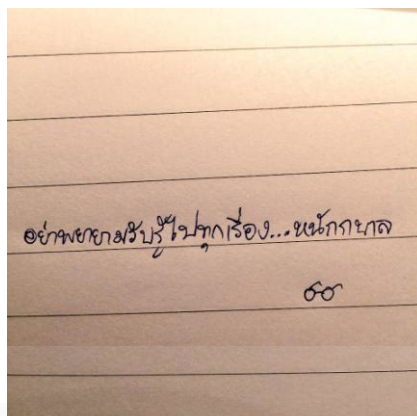 อย่าพยายามรับรู้ไปทุกเรื่อง...หนักกบาล